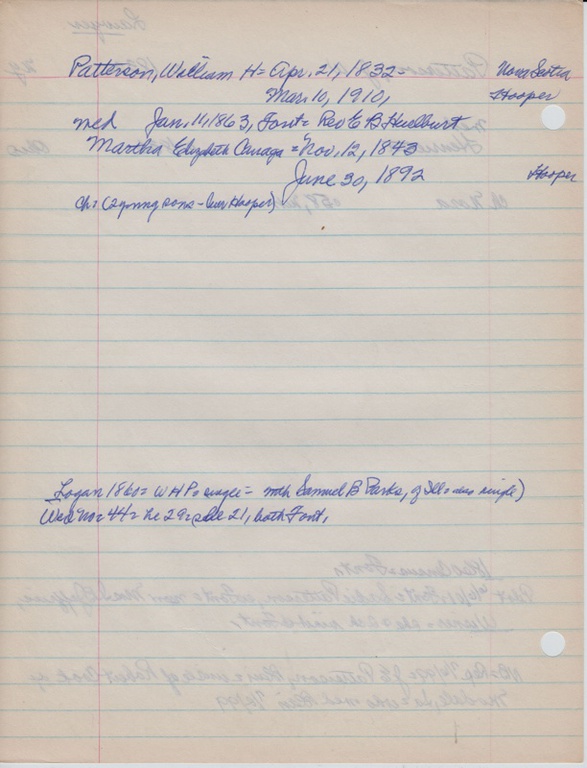 Patterson, William H = Apr. 21, 1832 - Nova Scotia
Mar. 10, 1910, Hooper
med Jan. 11, 1863, Font = Rev E B Hurlburt
Martha Elizabeth = Nov. 12, 1843
June 30, 1892 Hooper
Ch = (2 young sons - bur Hooper)
Logan 1860 = W H P = single = with Samuel B Parks, of Ill = also single)
Wed No = 44 = he 29 = she 21, both Font,